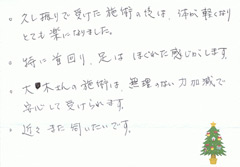 ・久し振りで受けた施術の後は、体が軽くなり
とても楽になりました。
・特に首回り、足は ほぐれた感じがします。
・大木さんの施術は、無理のない力加減で
安心して受けられます。
・近々 また 伺いたいです。